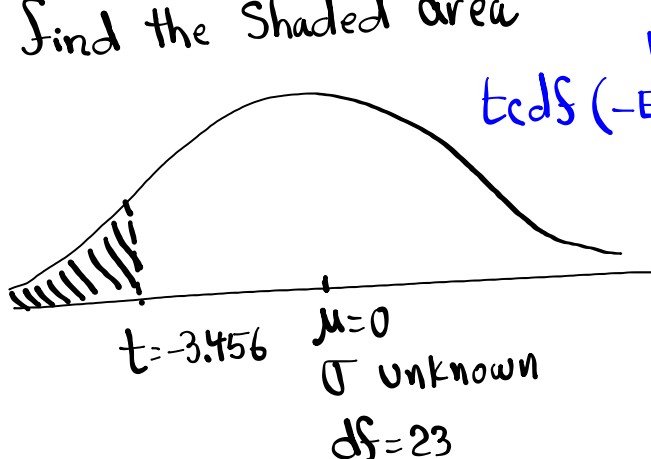 find the Shaded area
tcdf (-E
t=-3.456
μ=0
σ unknown
df=23